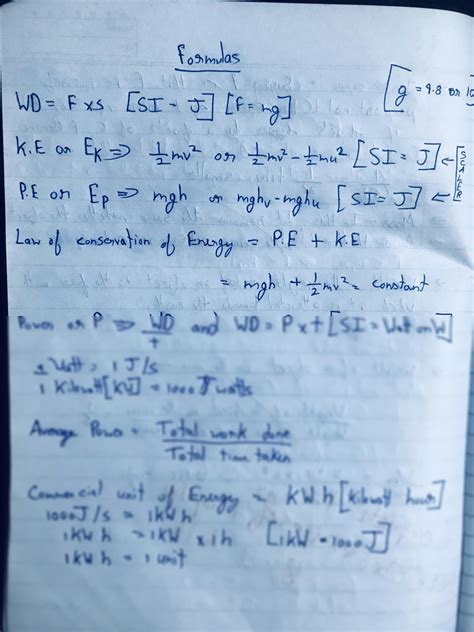 Formulas
[g = 9.8 or 10
WD = F x s. [SI - J] [F = mg]
K.E or Ek ⇒ 1/2 mv² or 1/2 mv² - 1/2 mu² [SI = J] ← SCALAR
P.E or Ep ⇒ mgh or mghv - mghu [SI = J] ←
Law of conservation of Energy = P.E + K.E
= mgh + 1/2 mv² = constant
Power or P ⇒ WD/t and WD = P x t [SI = Watt or W]
1 Watt = 1 J/s
1 Kilowatt [KW] = 1000 J watts
Average Power = Total work done
Total time taken
Commercial unit of Energy = KW h [kilowatt hours]
1000 J/s = 1 KW h
1 KW h = 1 KW x 1 h [1 KW = 1000 J]
1 KW h = 1 unit